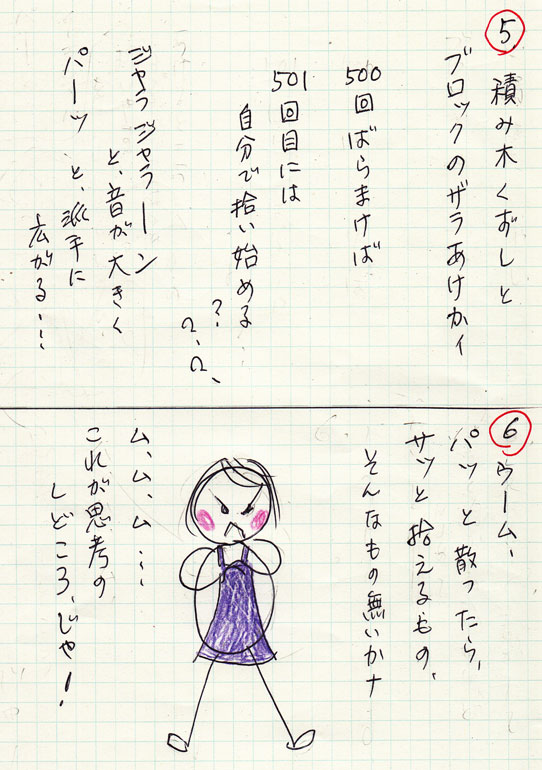 ⑤
積み木くずしと
ブロックのザラあけかィ
500回ばらまけば
501回目には
自分で拾い始める
?、?、?
ジャラジャラーン
と、音が大きく
パーッと、派手に
広がる…
⑥
ウーム、
パッと散ったら、
サッと拾えるもの、
そんなもの無いかナ
ム、ム、ム…
これが思考の
しどころ、じゃ!